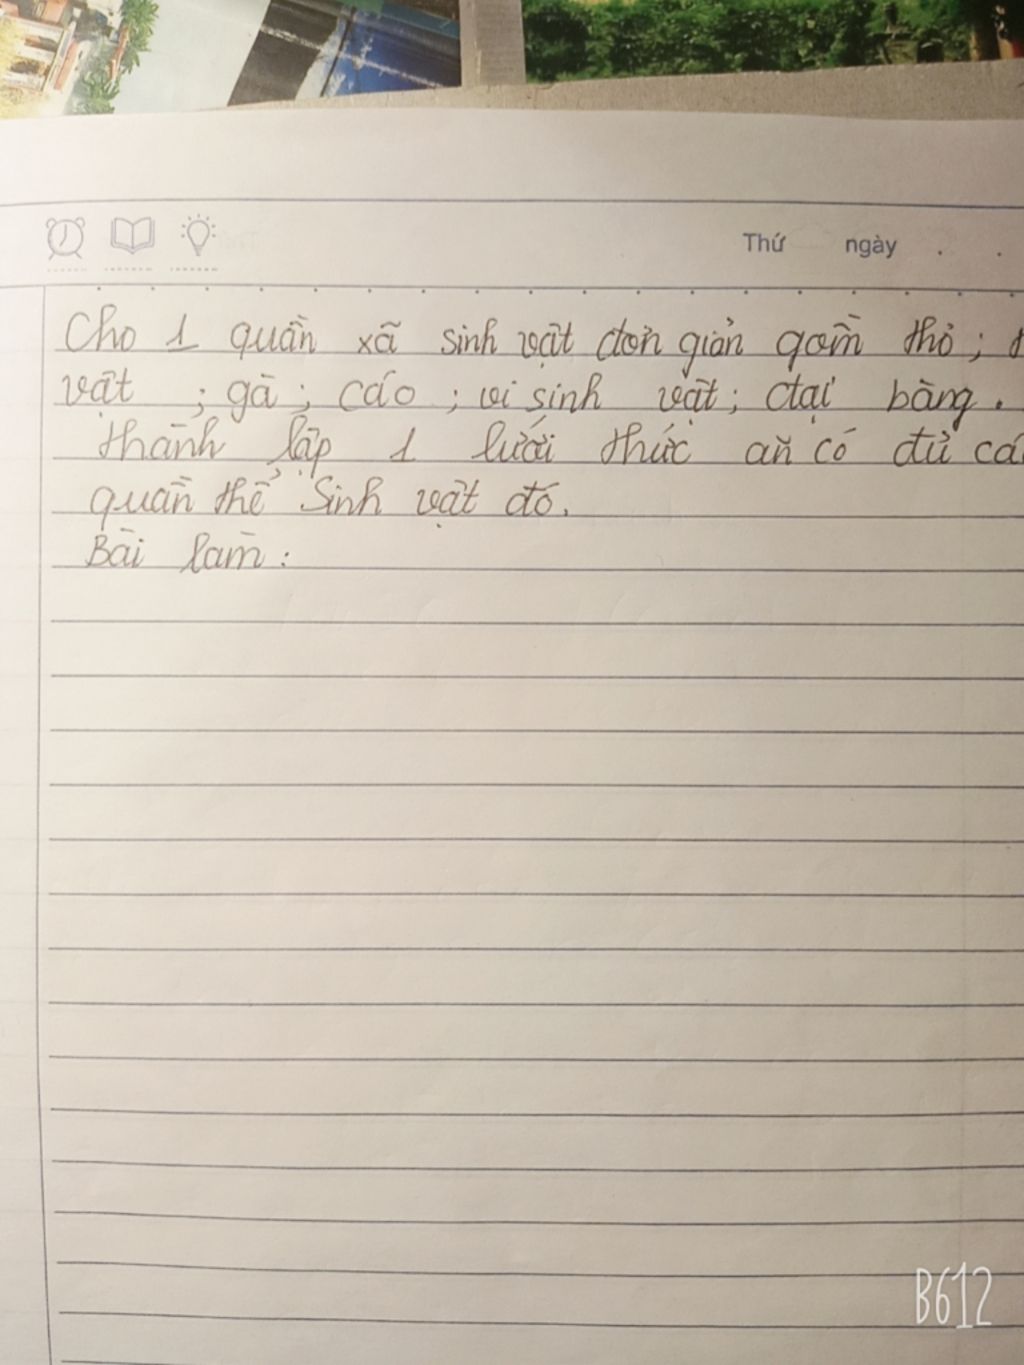 Thứ ngày . .
Cho 1 quần xã sinh vật đơn giản gồm thỏ;
vật ; gà; cáo; vi sinh vật; đại bàng.
thành lập 1 lưới thức ăn có đủ
quần thể sinh vật đó.
Bài làm:
B612